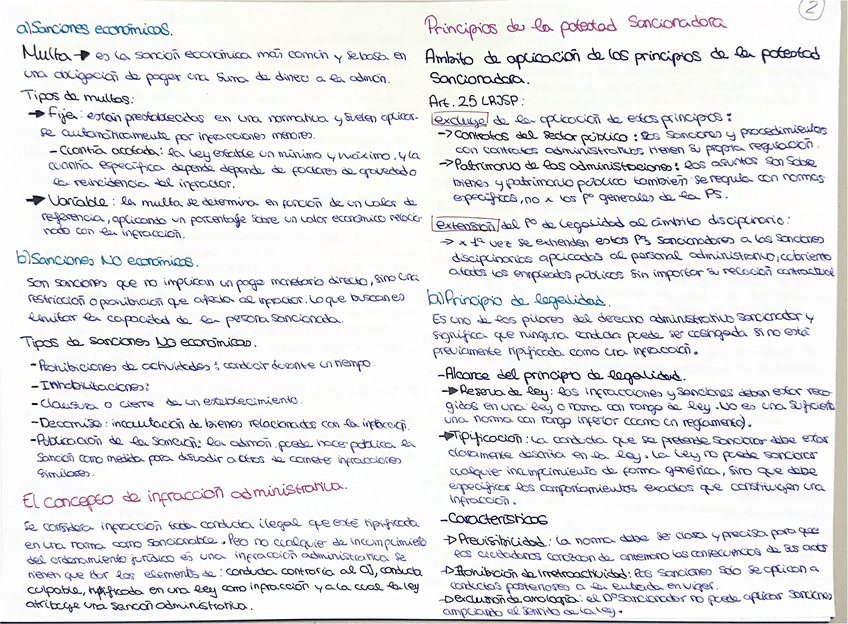 a) Sanciones económicas.
Multa → es la sanción económica más común y se basa en
una obligación de pagar una suma de dinero a la admón.
Tipos de multas:
→ Fija: están preestablecidos en una normativa y suelen aplicar-
se automáticamente por infracciones menores.
- Cuantía acotada: la ley establece un mínimo y máximo, y la
cuantía específica depende depende de factores de gravedad o
la reincidencia del infractor.
→ Variable: la multa se determina en función de un valor de
referencia, aplicando un porcentaje sobre un valor económico relacio-
nado con la infracción.
b) Sanciones NO económicas.
Son sanciones que no implican un pago monetario directo, sino una
restricción o prohibición que afecta al infractor. Lo que buscan es
limitar la capacidad de la persona sancionada.
Tipos de sanciones NO económicas.
- Prohibiciones de actividades: conducir durante un tiempo.
- Inhabilitaciones:
- Clausura o cierre de un establecimiento.
- Decomiso: incautación de bienes relacionados con la infracción.
- Publicación de la sanción: la admón. puede hacer pública la
sanción como medida para disuadir a otros de cometer infracciones
similares.
El concepto de infracción administrativa.
Se considera infracción toda conducta ilegal que esté tipificada
en una norma como sancionable. Pero no cualquier de incumplimiento
del ordenamiento jurídico es una infracción administrativa se
tienen que dar los elements de: conducta contraria al OJ, conducta
culpable, tipificada en una ley como infracción y a la cual la ley
atribuye una sanción administrativa.
2
Principios de la potestad Sancionadora
Ámbito de aplicación de los principios de la potestad
Sancionadora.
Art. 25 LRJSP:
excluye de la aplicación de estos principios:
→ Contratos del sector público: las sanciones y procedimientos
con contratos administrativos tienen su propia regulación.
→ Patrimonio de las administraciones: los asuntos son sobre
bienes y patrimonio público también se regula con normas
específicas, no x los pº generales de la PS.
extensión del Pº de legalidad al ámbito disciplinario:
→ x 1ª vez se extienden estos Pº sancionadores a las sanciones
disciplinarias aplicadas al personal administrativo, cubriendo
a todos los empleados públicos sin importar su relación contractual
b) Principio de legalidad.
Es uno de los pilares del derecho administrativo sancionador y
significa que ninguna conducta puede ser castigada si no está
previamente tipificada como una infracción.
- Alcance del principio de legalidad.
→ Reserva de ley: las infracciones y sanciones deben estar reco-
gidas en una ley o norma con rango de ley. No es una suficiente
una norma con rango inferior (como un reglamento).
→ Tipificación: la conducta que se pretende sancionar debe estar
claramente descrita en la ley. La ley no puede sancionar
cualquier incumplimiento de forma genérica, sino que debe
especificar los comportamientos exactos que constituyen una
infracción.
- Características
→ Previsibilidad: la norma debe ser clara y precisa para que
los ciudadanos conozcan de antemano las consecuencias de sus actos
→ Prohibición de irretroactividad: las sanciones solo se aplican a
conductas posteriores a la entrada en vigor.
→ Exclusión de analogía: el Dº sancionador no puede aplicar sanciones
ampliando el sentido de la ley.